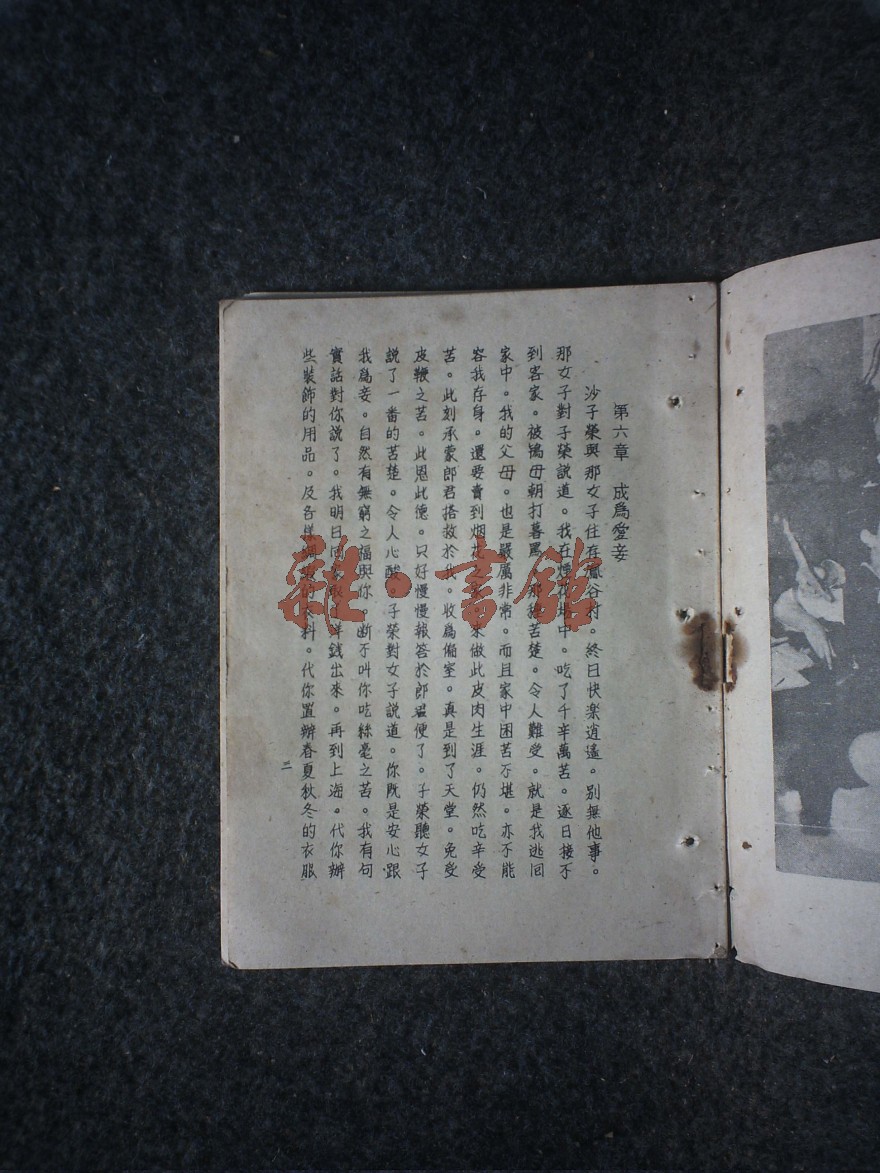 第六章　成爲愛妾
沙子榮與那女子住在鳳谷村。終日快樂逍遙。别無他事。
那女子對子榮説道。我在煙花巷中。吃了千辛萬苦。逐日接不
到客家。被鴇母朝打暮罵。那種苦楚。令人難受。就是我逃回
家中。我的父母。也是嚴厲非常。而且家中困苦不堪。亦不能
容我存身。還要賣到烟花之 來做此皮肉生涯。仍然吃辛受
苦。此刻承蒙郎君搭救於我。收爲偏室。真是到了天堂。免受
皮鞭之苦。此恩此德。只好慢慢報答於郎君便了。子榮聽女子
説了一番的苦楚。令人心酸。子榮對女子説道。你既是安心跟
我爲妾。自然有無窮之福與你。斷不叫你吃絲毫之苦。我有句
實話對你説了。我明日回家取了洋錢出來。再到上海。代你辦
些裝飾的用品。及各樣 的衣料。代你置辦春夏秋冬的衣服
三
雜·書館